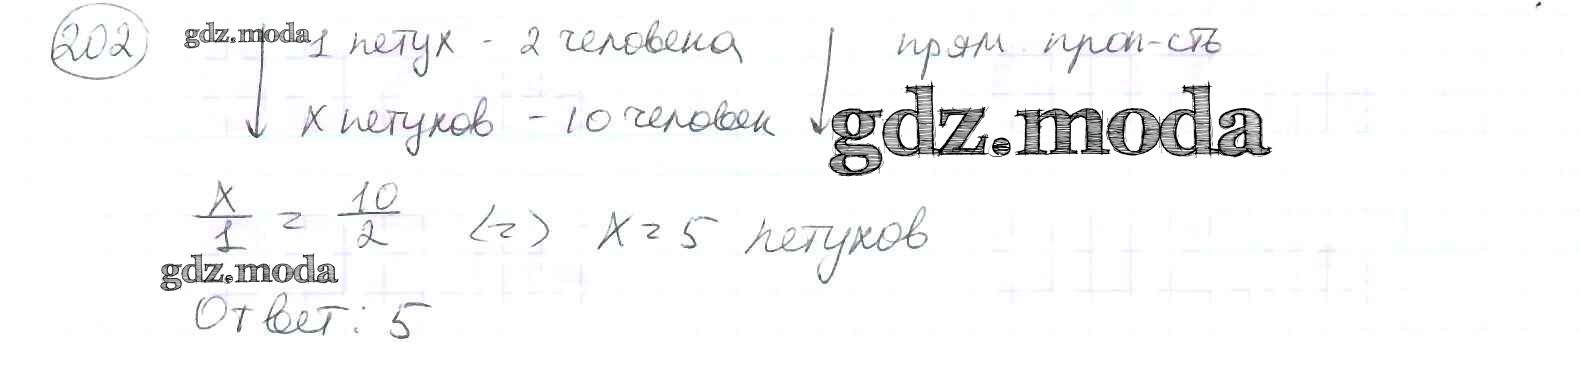 202 gdz.moda 1 петух - 2 человека прям. проп-сть
x петухов - 10 человек gdz.moda
x/1 = 10/2 <=> x = 5 петухов
gdz.moda
Ответ: 5